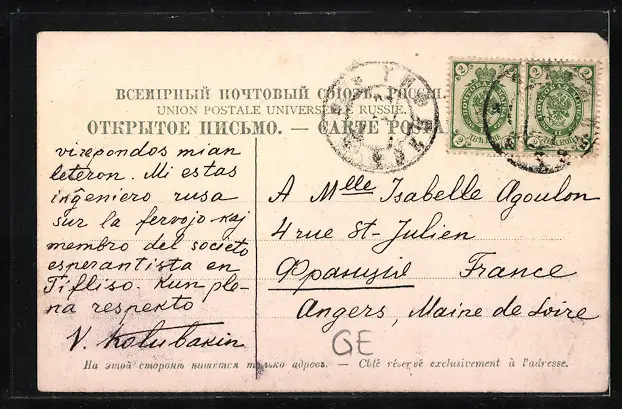 ВСЕМІРНЫЙ ПОЧТОВЫЙ СОЮЗЪ. РОССІЯ.
UNION POSTALE UNIVERSELLE RUSSIE.
ОТКРЫТОЕ ПИСЬМО. — CARTE POSTA
virepondos mian
leteron. Mi estas
inĝeniero rusa
sur la fervojo kaj
membro del societo
esperantista en
Tifliso. Kun ple-
na respekto
V. Kolubakin
A Mlle Isabelle Agoulon
4 rue St-Julien
Франція France
Angers, Maine de Loire
GE
На этой сторонѣ пишется только адресъ. — Côté réservé exclusivement à l'adresse.